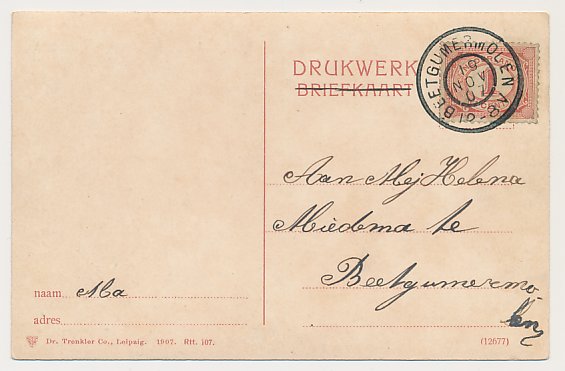 DRUKWERK
BRIEFKAART
BEETGUMERMOLEN
19
NOV
07
12-8V
Aan Mej Helena
Miedema te
Beetgumermo
len
naam Ma
adres
Dr. Trenkler Co., Leipzig. 1907. Rtt. 107.
(12677)